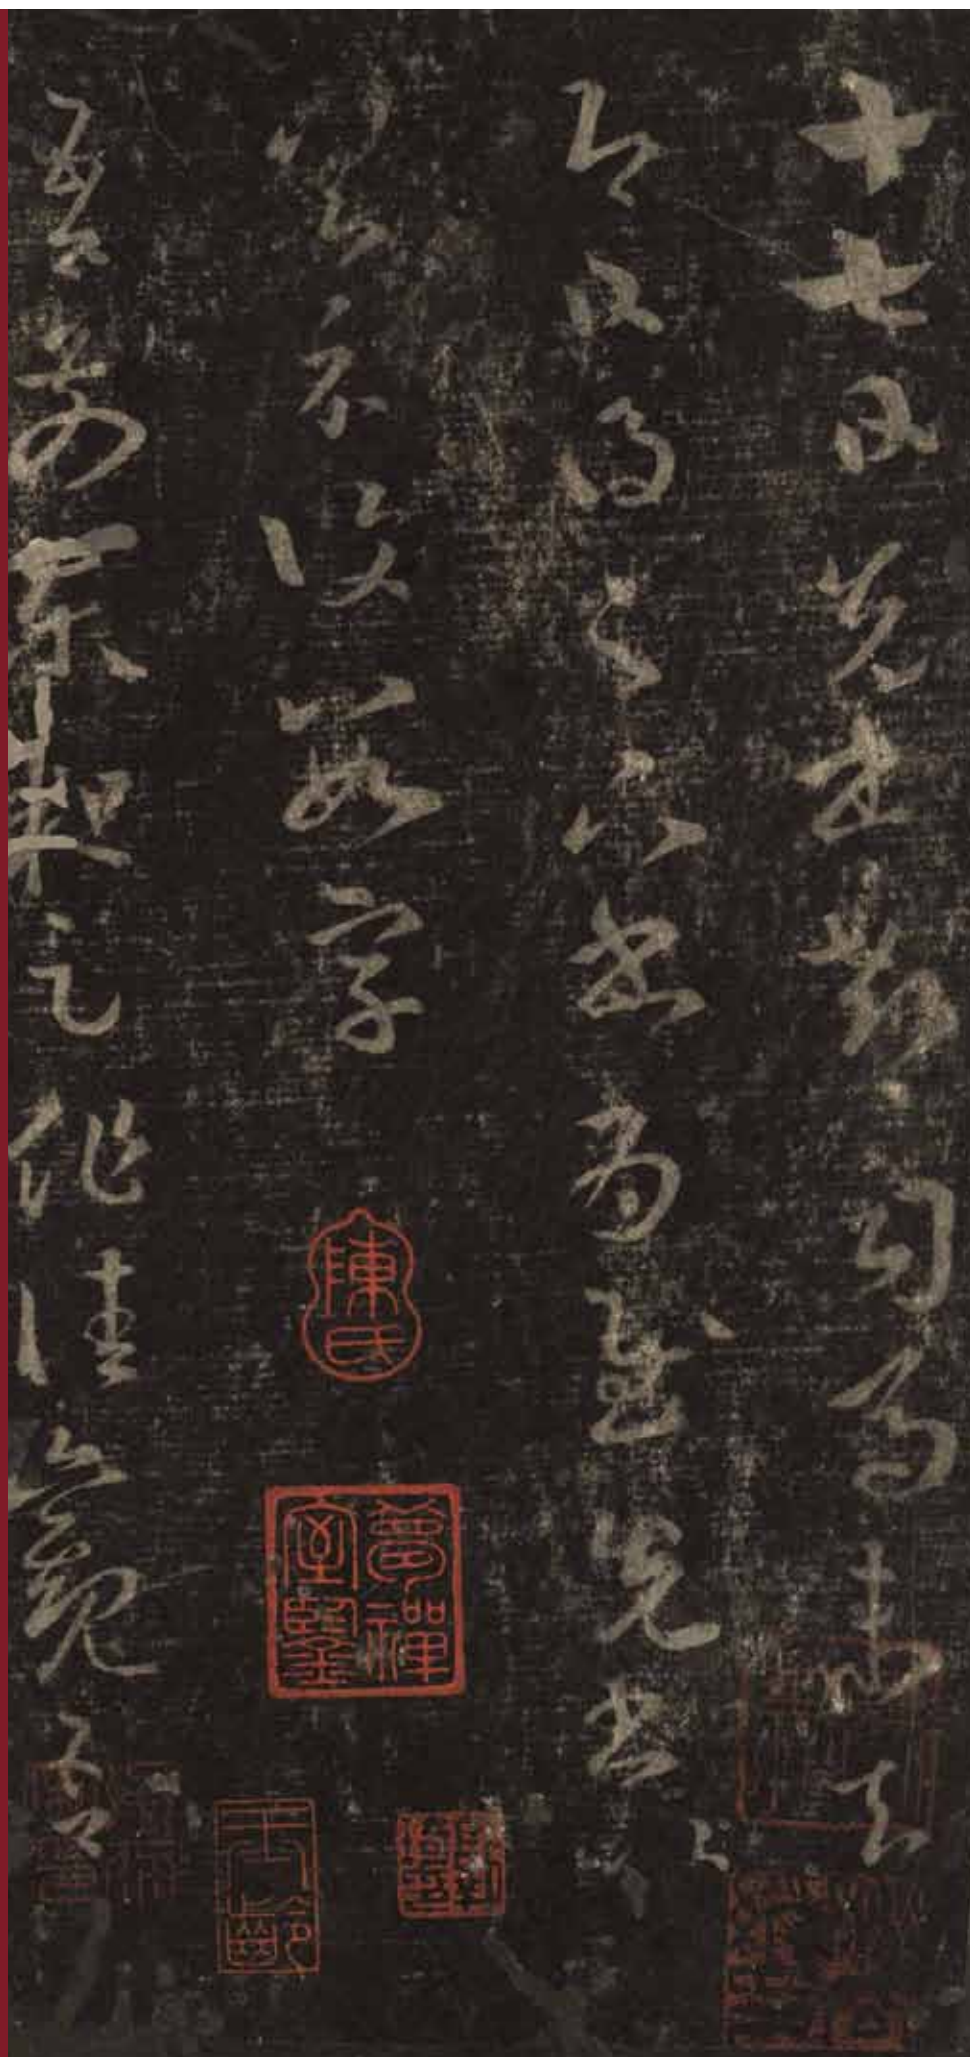 十七日先書郗司馬未去
即日得足下書為慰先書以
具示復數字
陳氏
夢禪室鑒
吾前東粗足作佳觀吾